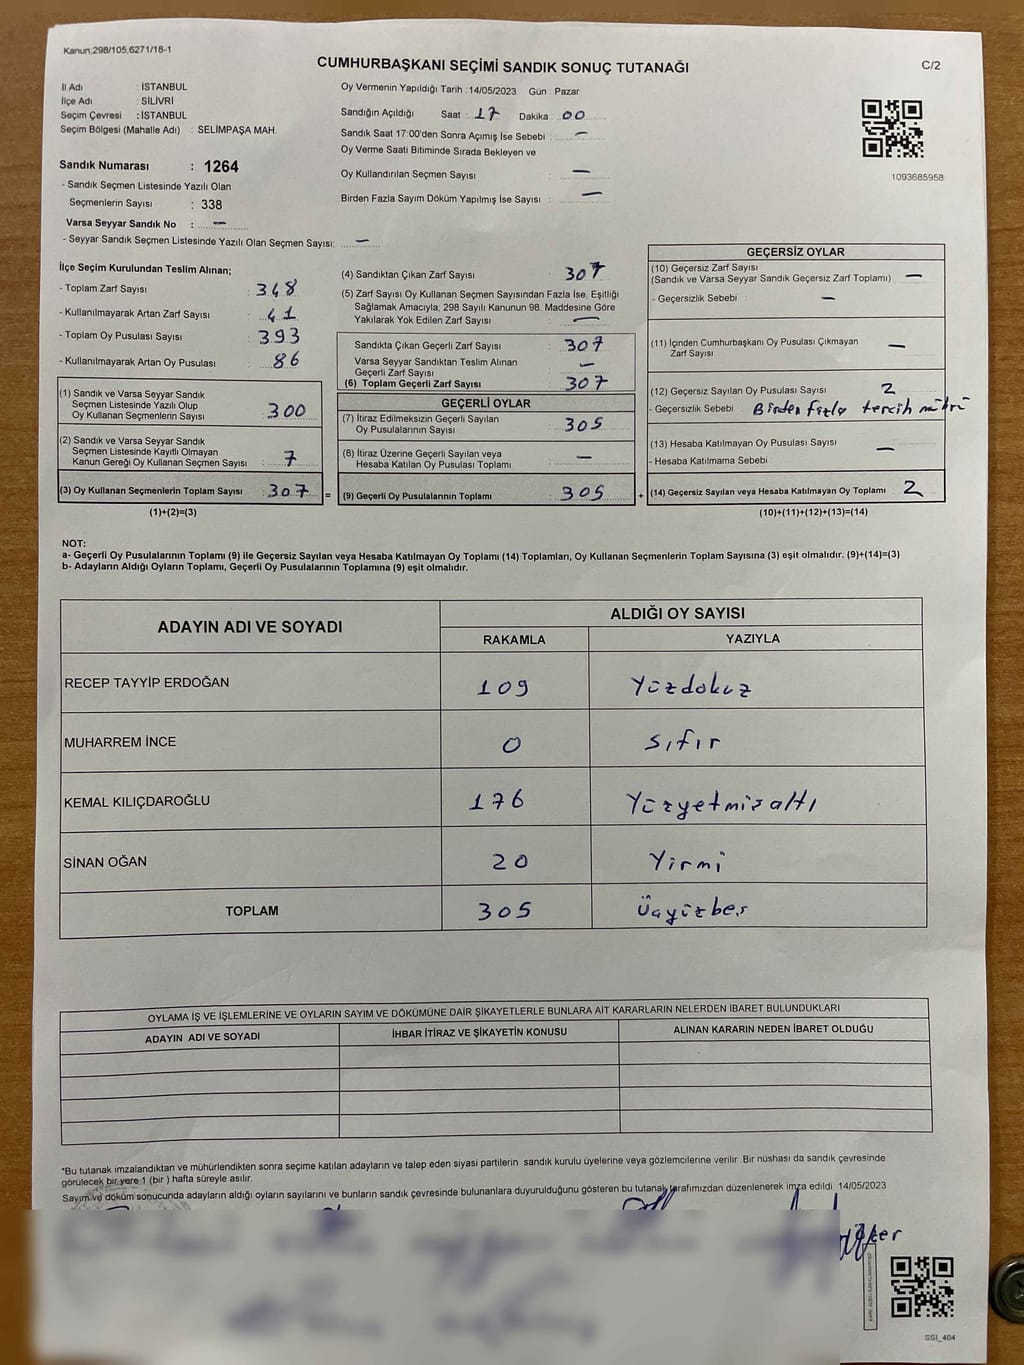 Kanun:298/105,6271/18-1
CUMHURBAŞKANI SEÇİMİ SANDIK SONUÇ TUTANAĞI
C/2
İl Adı : İSTANBUL
İlçe Adı : SİLİVRİ
Seçim Çevresi : İSTANBUL
Seçim Bölgesi (Mahalle Adı) : SELİMPAŞA MAH.
Sandık Numarası : 1264
- Sandık Seçmen Listesinde Yazılı Olan
Seçmenlerin Sayısı : 338
Varsa Seyyar Sandık No : —
- Seyyar Sandık Seçmen Listesinde Yazılı Olan Seçmen Sayısı: —
Oy Vermenin Yapıldığı Tarih :14/05/2023 Gün : Pazar
Sandığın Açıldığı Saat : 17 Dakika : 00
Sandık Saat 17:00'den Sonra Açımış İse Sebebi : —
Oy Verme Saati Bitiminde Sırada Bekleyen ve
Oy Kullandırılan Seçmen Sayısı : —
Birden Fazla Sayım Döküm Yapılmış İse Sayısı : —
1093685958
İlçe Seçim Kurulundan Teslim Alınan;
- Toplam Zarf Sayısı : 348
- Kullanılmayarak Artan Zarf Sayısı : 41
- Toplam Oy Pusulası Sayısı : 393
- Kullanılmayarak Artan Oy Pusulası : 86
(1) Sandık ve Varsa Seyyar Sandık
Seçmen Listesinde Yazılı Olup
Oy Kullanan Seçmenlerin Sayısı : 300
(2) Sandık ve Varsa Seyyar Sandık
Seçmen Listesinde Kayıtlı Olmayan
Kanun Gereği Oy Kullanan Seçmen Sayısı : 7
(3) Oy Kullanan Seçmenlerin Toplam Sayısı : 307 =
(1)+(2)=(3)
(4) Sandıktan Çıkan Zarf Sayısı : 307
(5) Zarf Sayısı Oy Kullanan Seçmen Sayısından Fazla İse, Eşitliği
Sağlamak Amacıyla, 298 Sayılı Kanunun 98. Maddesine Göre
Yakılarak Yok Edilen Zarf Sayısı : —
Sandıkta Çıkan Geçerli Zarf Sayısı : 307
Varsa Seyyar Sandıktan Teslim Alınan
Geçerli Zarf Sayısı : —
(6) Toplam Geçerli Zarf Sayısı : 307
GEÇERLİ OYLAR
(7) İtiraz Edilmeksizin Geçerli Sayılan
Oy Pusulalarının Sayısı : 305
(8) İtiraz Üzerine Geçerli Sayılan veya
Hesaba Katılan Oy Pusulası Toplamı : —
(9) Geçerli Oy Pusulalarının Toplamı : 305 +
GEÇERSİZ OYLAR
(10) Geçersiz Zarf Sayısı
(Sandık ve Varsa Seyyar Sandık Geçersiz Zarf Toplamı) : —
- Geçersizlik Sebebi : —
(11) İçinden Cumhurbaşkanı Oy Pusulası Çıkmayan
Zarf Sayısı : —
(12) Geçersiz Sayılan Oy Pusulası Sayısı : 2
- Geçersizlik Sebebi : Birden fazla tercih mührü
(13) Hesaba Katılmayan Oy Pusulası Sayısı : —
- Hesaba Katılmama Sebebi :
(14) Geçersiz Sayılan veya Hesaba Katılmayan Oy Toplamı : 2
(10)+(11)+(12)+(13)=(14)
NOT:
a- Geçerli Oy Pusulalarının Toplamı (9) ile Geçersiz Sayılan veya Hesaba Katılmayan Oy Toplamı (14) Toplamları, Oy Kullanan Seçmenlerin Toplam Sayısına (3) eşit olmalıdır. (9)+(14)=(3)
b- Adayların Aldığı Oyların Toplamı, Geçerli Oy Pusulalarının Toplamına (9) eşit olmalıdır.
ADAYIN ADI VE SOYADI ALDIĞI OY SAYISI
RAKAMLA YAZIYLA
RECEP TAYYİP ERDOĞAN 109 Yüzdokuz
MUHARREM İNCE 0 Sıfır
KEMAL KILIÇDAROĞLU 176 Yüzyetmişaltı
SİNAN OĞAN 20 Yirmi
TOPLAM 305 Üçyüzbeş
OYLAMA İŞ VE İŞLEMLERİNE VE OYLARIN SAYIM VE DÖKÜMÜNE DAİR ŞİKAYETLERLE BUNLARA AİT KARARLARIN NELERDEN İBARET BULUNDUKLARI
ADAYIN ADI VE SOYADI İHBAR İTİRAZ VE ŞİKAYETİN KONUSU ALINAN KARARIN NEDEN İBARET OLDUĞU
*Bu tutanak imzalandıktan ve mühürlendikten sonra seçime katılan adayların ve talep eden siyasi partilerin sandık kurulu üyelerine veya gözlemcilerine verilir. Bir nüshası da sandık çevresinde
görülecek bir yere 1 (bir ) hafta süreyle asılır.
Sayım ve döküm sonucunda adayların aldığı oyların sayılarını ve bunların sandık çevresinde bulunanlara duyurulduğunu gösteren bu tutanak tarafımızdan düzenlenerek imza edildi. 14/05/2023
SSI_404